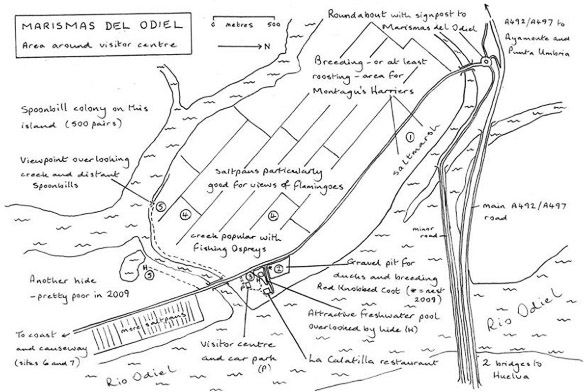 MARISMAS DEL ODIEL
Area around visitor centre
0 metres 500
N
Roundabout with signpost to
Marismas del Odiel
A492/A497 to
Ayamonte and
Punta Umbria
Breeding - or at least
roosting - area for
Montagu's Harriers
Spoonbill colony on this
island (500 pairs)
1
saltmarsh
Viewpoint overlooking
creek and distant
Spoonbills
saltpans particularly
good for views of flamingoes
5
4
4
main A492/A497
road
minor
road
creek popular with
Fishing Ospreys
Another hide
- pretty poor in 2009
H
5
3
H
2
P
Gravel pit for
ducks and breeding
Red Knobbed Coot (* = nest
2009)
more saltpans
Attractive freshwater pool
overlooked by hide (H)
To coast
and causeway
(sites 6 and 7)
Visitor centre
and car park
(P)
La Calatilla restaurant
Rio Odiel
Rio Odiel
2 bridges to
Huelva